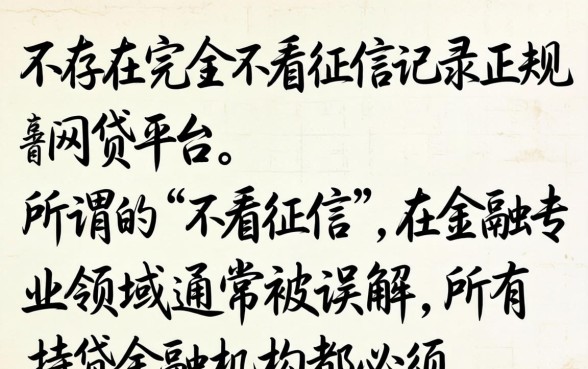 不存在完全不看征信记录正规
网贷平台。
所谓的“不看征信”,在金融专
业领域通常被误解,所有
持贷金融机构都必须